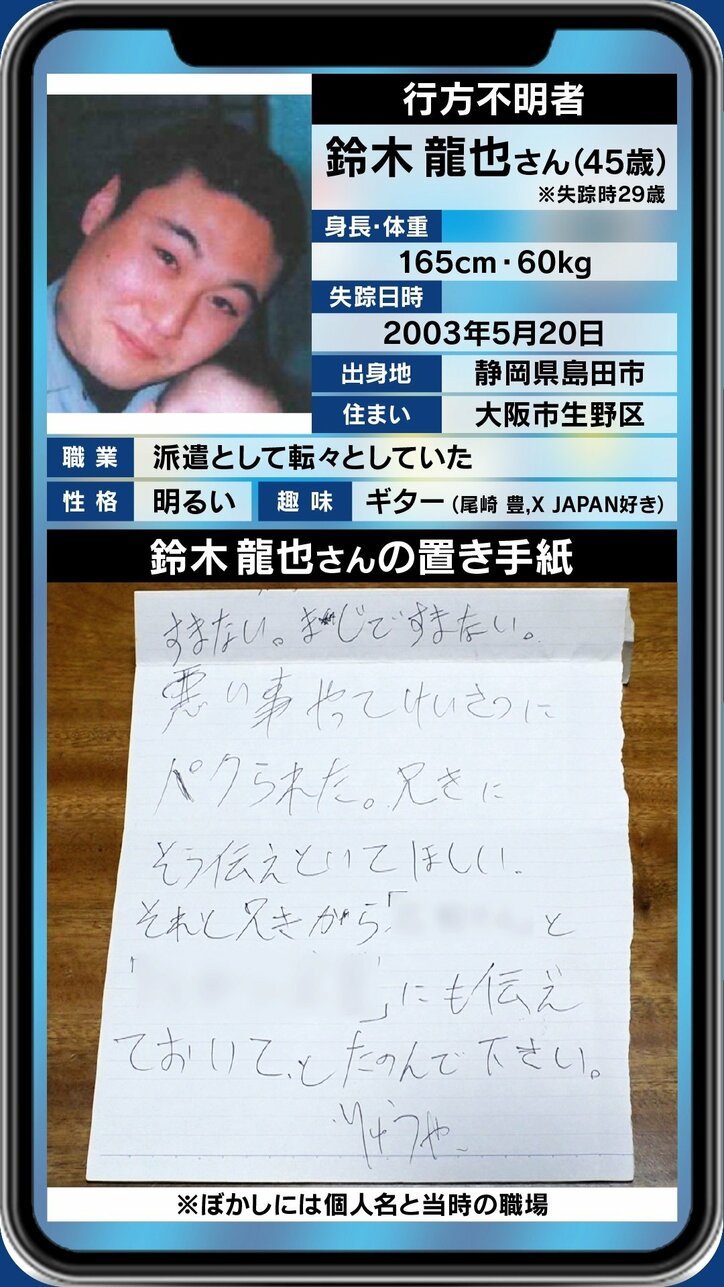 行方不明者
鈴木 龍也さん(45歳)
※失踪時29歳
身長・体重
165cm・60kg
失踪日時
2003年5月20日
出身地 静岡県島田市
住まい 大阪市生野区
職業 派遣として転々としていた
性格 明るい 趣味 ギター(尾崎 豊,X JAPAN好き)
鈴木 龍也さんの置き手紙
すまない。まじですまない。
悪い事やってけいさつに
パクられた。兄きに
そう伝えといてほしい。
それと兄きから「 と
「 」にも伝え
ておいて、とたのんで下さい。
りゅうや
※ぼかしには個人名と当時の職場